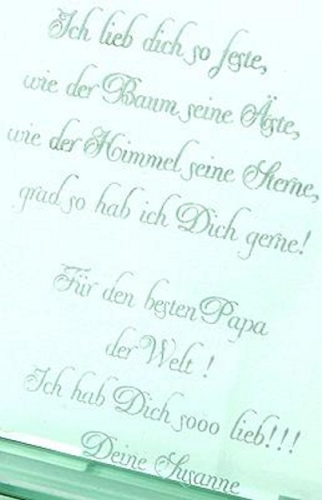 Ich lieb dich so feste,
wie der Baum seine Äste,
wie der Himmel seine Sterne,
grad so hab ich Dich gerne!
Für den besten Papa
der Welt !
Ich hab Dich sooo lieb!!!
Deine Susanne